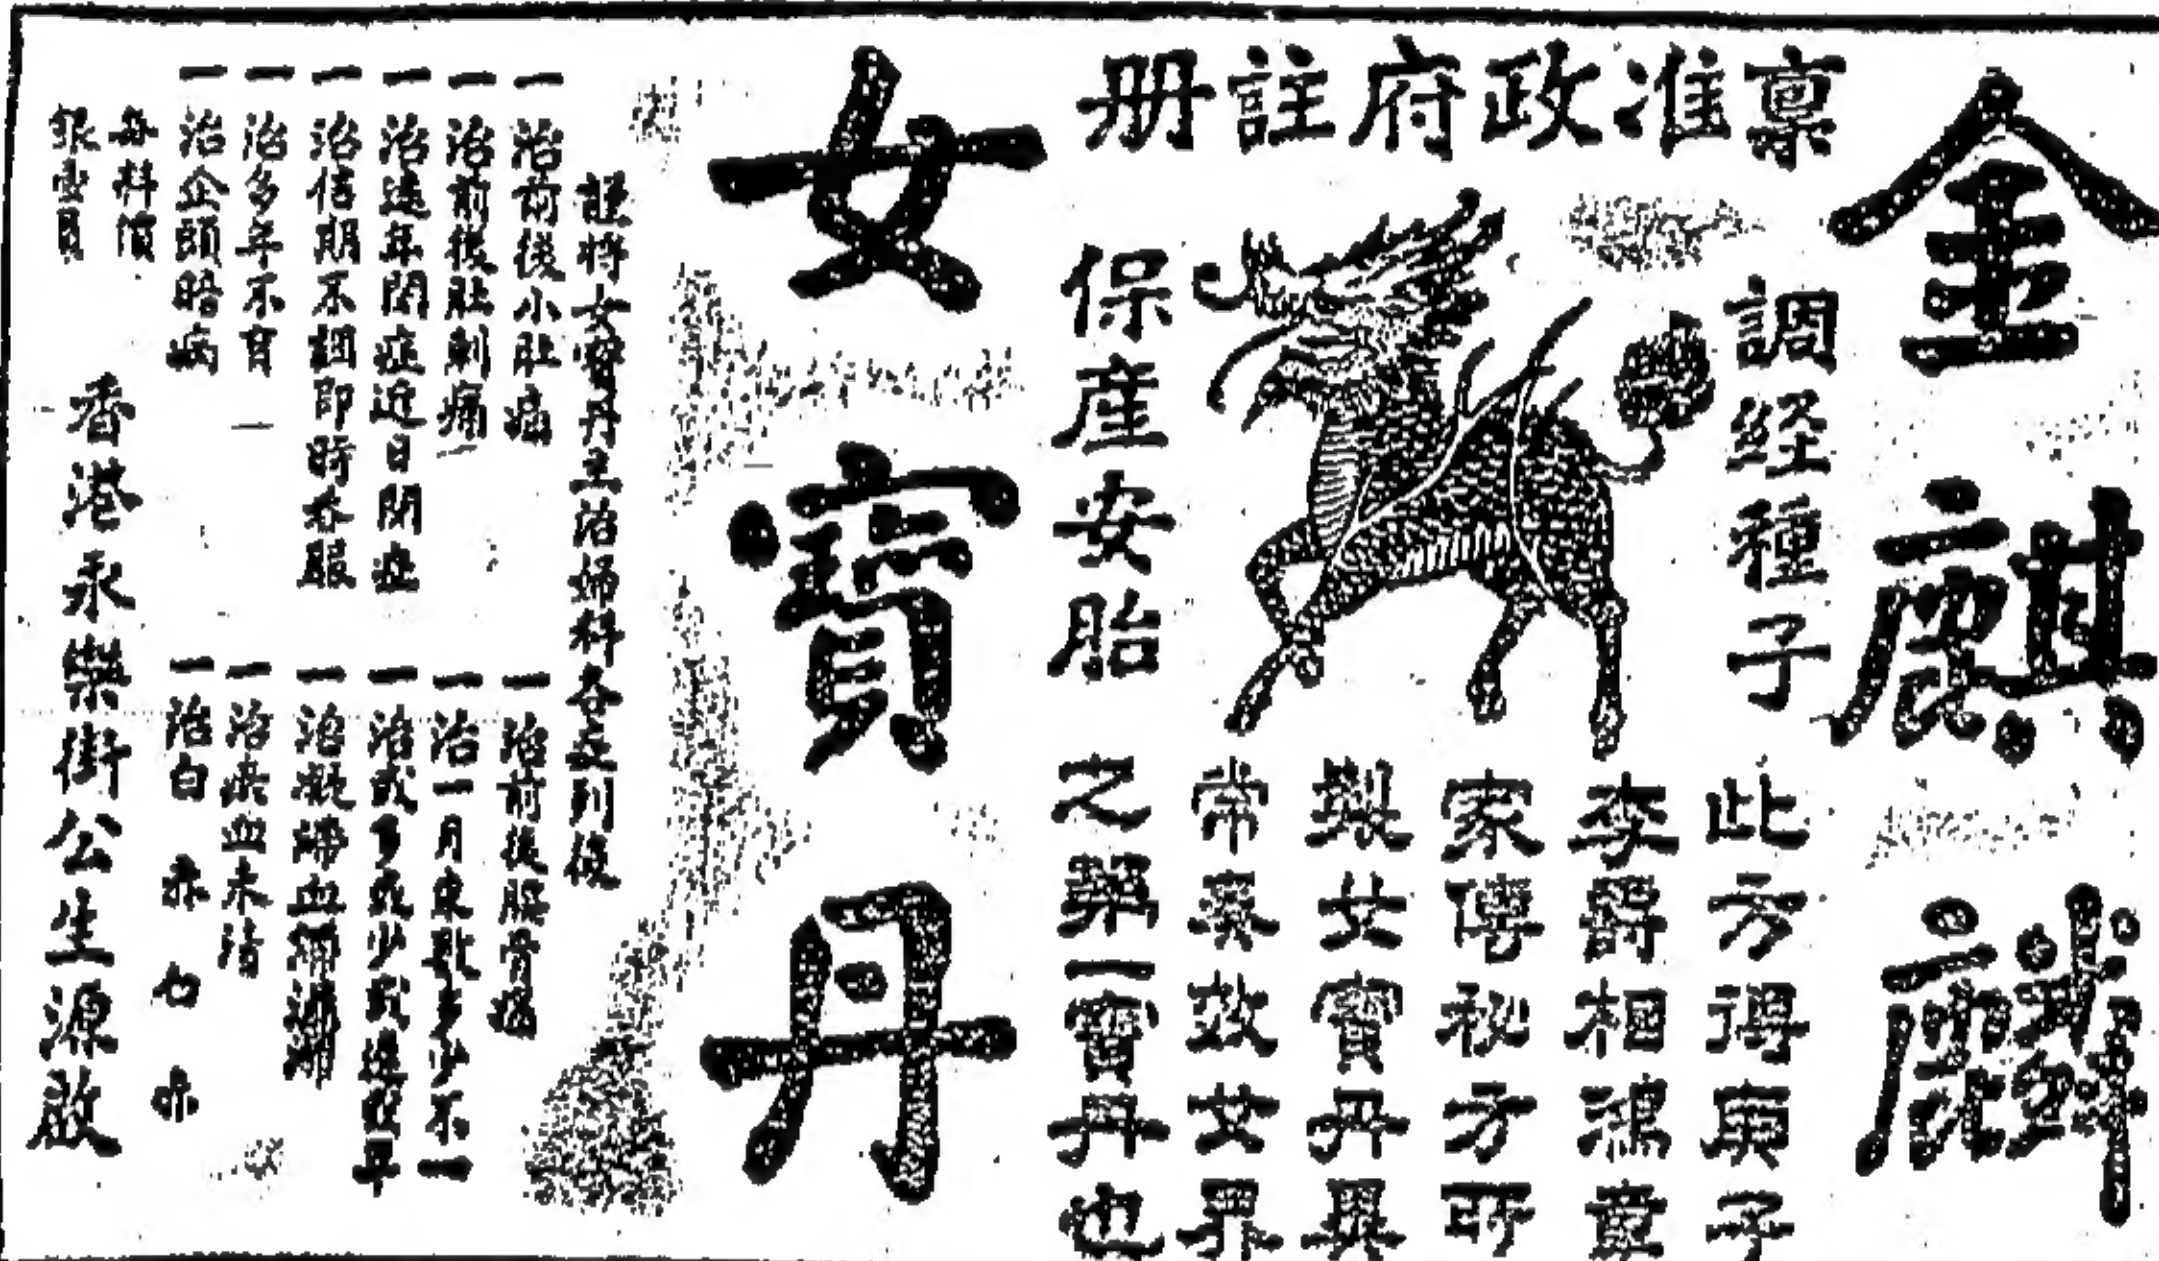 金麒麟
稟准政府註册
調経種子
保産安胎
此方得庚子
李爵相鴻章
家傳秘方所
製女寶丹異
常奏效女界
之藥一寶丹也
女寶丹
謹將女寶丹主治婦科各症列後
一治前後小肚痛
一治前後肚刺痛
一治遠年閉症近日閉症
一治信期不調即時吞服
一治多年不育
一治企頭暗病
一治前後腰骨痛
一治一月來數多少不一
一治或多或少或遲或早
一治凝滯血
一治血未清
一治白
每料價
銀壹員
香港永樂街公生源啟